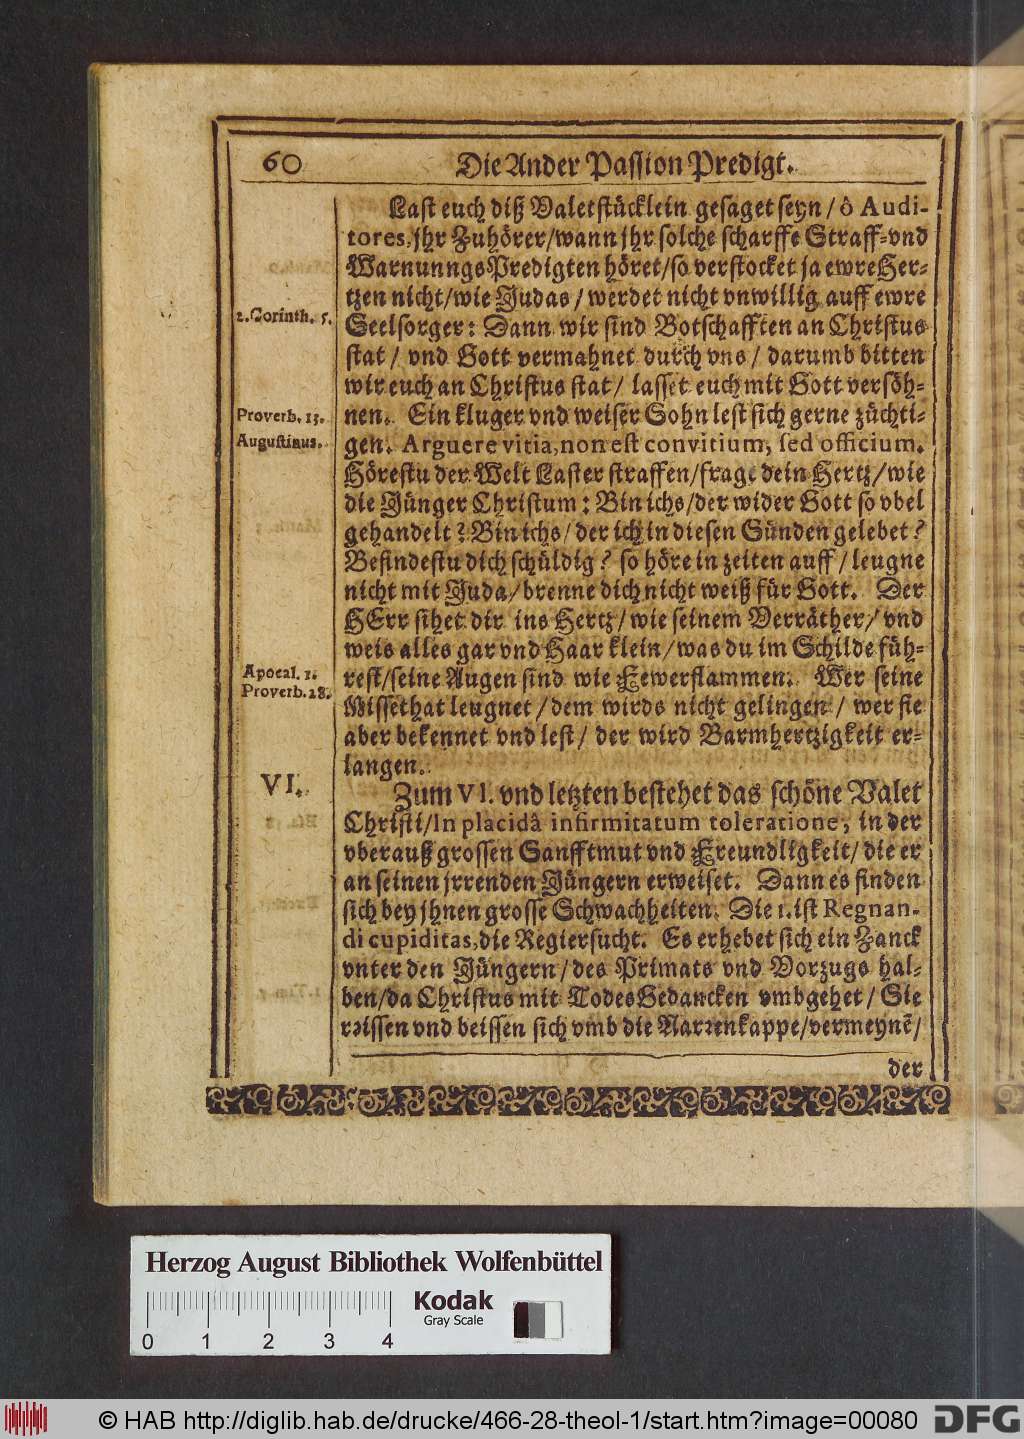 60
Die Ander Passion Predigt.
Last euch diß Valetstücklein gesaget seyn/ ô Audi-
tores, jhr Zuhörer/wann jhr solche scharffe Straff-vnd
WarnunngsPredigten höret/so verstocket ja ewre Her-
tzen nicht/wie Judas/ werdet nicht vnwillig auff ewre
2. Corinth. 5.
Seelsorger: Dann wir sind Botschafften an Christus
stat/ vnd Gott vermahnet durch vns/ darumb bitten
wir euch an Christus stat/ lasset euch mit Gott versöh-
Proverb. 13.
nen. Ein kluger vnd weiser Sohn lest sich gerne züchti-
Augustinus.
gen. Arguere vitia, non est convitium, sed officium.
Hörestu der Welt Laster straffen/frage dein Hertz/wie
die Jünger Christum: Bin ichs/der wider Gott so vbel
gehandelt? Bin ichs/ der ich in diesen Sünden gelebet?
Befindestu dich schüldig? so höre in zeiten auff/ leugne
nicht mit Juda/brenne dich nicht weiß für Gott. Der
HErr sihet dir ins Hertz/wie seinem Verräther/ vnd
weis alles gar vnd Haar klein/was du im Schilde füh-
Apocal. 1.
rest/seine Augen sind wie Fewerflammen. Wer seine
Proverb. 28.
Missethat leugnet/dem wirds nicht gelingen/ wer sie
aber bekennet vnd lest/ der wird Barmhertzigkeit er-
langen.
VI.
Zum VI. vnd letzten bestehet das schöne Valet
Christi/In placidâ infirmitatum toleratione, in der
vberauß grossen Sanfftmut vnd Freundligkeit/ die er
an seinen jrrenden Jüngern erweiset. Dann es finden
sich bey jhnen grosse Schwachheiten. Die 1. ist Regnan-
di cupiditas, die Regiersucht. Es erhebet sich ein Zanck
vnter den Jüngern/des Primats vnd Vorzugs hal-
ben/da Christus mit TodesGedancken vmbgehet/ Sie
reissen vnd beissen sich vmb die Narrenkappe/vermeynẽ/
der
Herzog August Bibliothek Wolfenbüttel
Kodak
Gray Scale
0 1 2 3 4
© HAB http://diglib.hab.de/drucke/466-28-theol-1/start.htm?image=00080
DFG